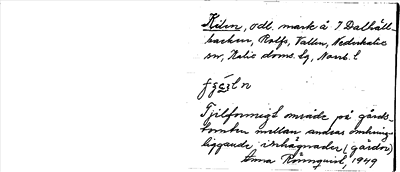 Kilen, odl. mark å 7 Dalhäll-
backen, Rolfs, Vallen, Nederkalix
sn, Kalix doms. lg, Norrb. l.
Kilformigt område på gårds-
tomten mellan andras omkring-
liggande inhägnader (gårdar)
Anna Rönnquist, 1949